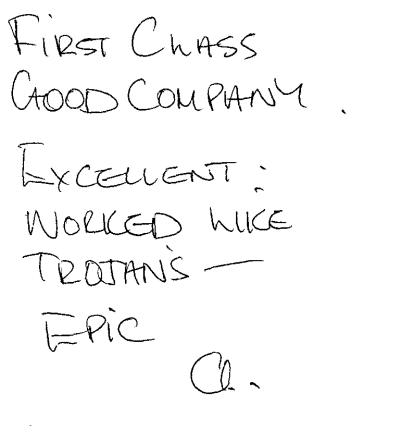 FIRST CLASS
GOOD COMPANY.
EXCELLENT:
WORKED LIKE
TROJANS —
EPIC